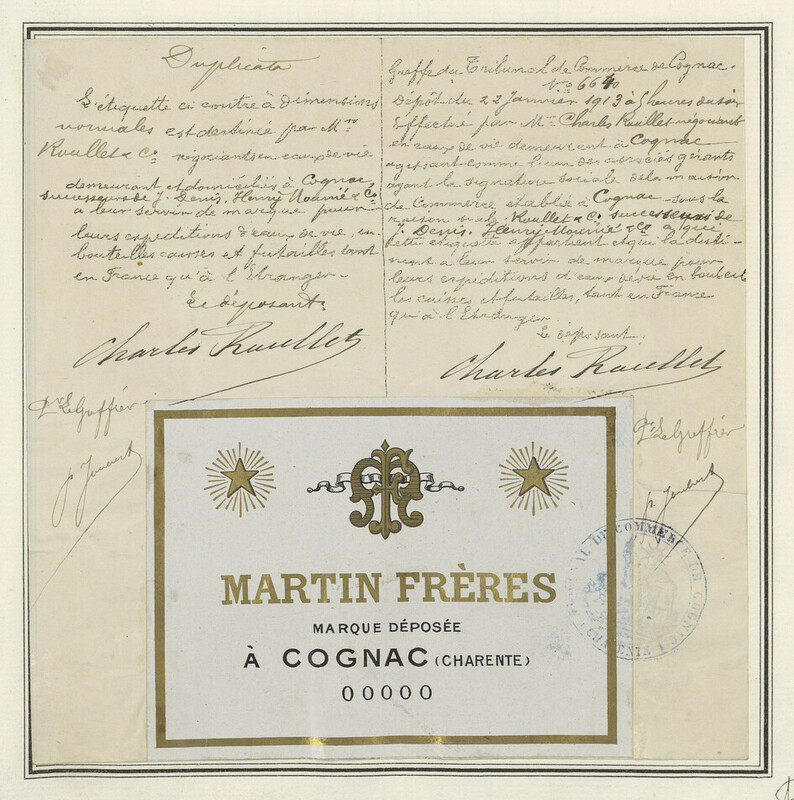 Duplicata
L'étiquette ci contre à dimensions
normales est destinée par Mrs
Roullet & Co négociants en eaux de vie
demeurant et domiciliés à Cognac
successeurs de J. Denis, Henry Mounié & Co
a leur servir de marque pour
leurs expéditions d'eaux de vie, en
bouteilles caisses et futailles tant
en France qu'à l'Etranger.
Le déposant.
Charles Roullet
Le Greffier
Greffe du Tribunal de Commerce de Cognac.
No 6640
Dépôt du 22 Janvier 1913 à 5 heures du soir
Effectué par Mr Charles Roullet négociant
en eaux de vie demeurant à Cognac
agissant comme l'un des associés gérants
ayant la signature sociale de la maison
de Commerce établie à Cognac sous la
raison sociale Roullet & Co successeurs de
J. Denis, Henry Mounié & Co a qui
cette étiquette appartient et qui la desti-
nent a leur servir de marque pour
leurs expéditions d'eaux de vie en bouteil
les caisses et futailles, tant en France
qu'à l'Etranger.
Le déposant.
Charles Roullet
Le Greffier
p. Joubert
MARTIN FRÈRES
MARQUE DÉPOSÉE
À COGNAC (CHARENTE)
00000
TRIBUNAL DE COMMERCE DE COGNAC
CHARENTE